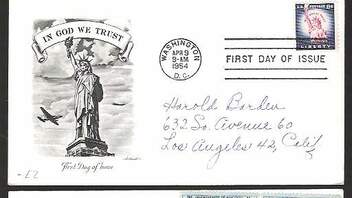 IN GOD WE TRUST
WASHINGTON
APR 9
9-AM
1954
D.C.
FIRST DAY OF ISSUE
LIBERTY
Harold Borden
632 So. Avenue 60
Los Angeles 42, Calif
First Day of Issue